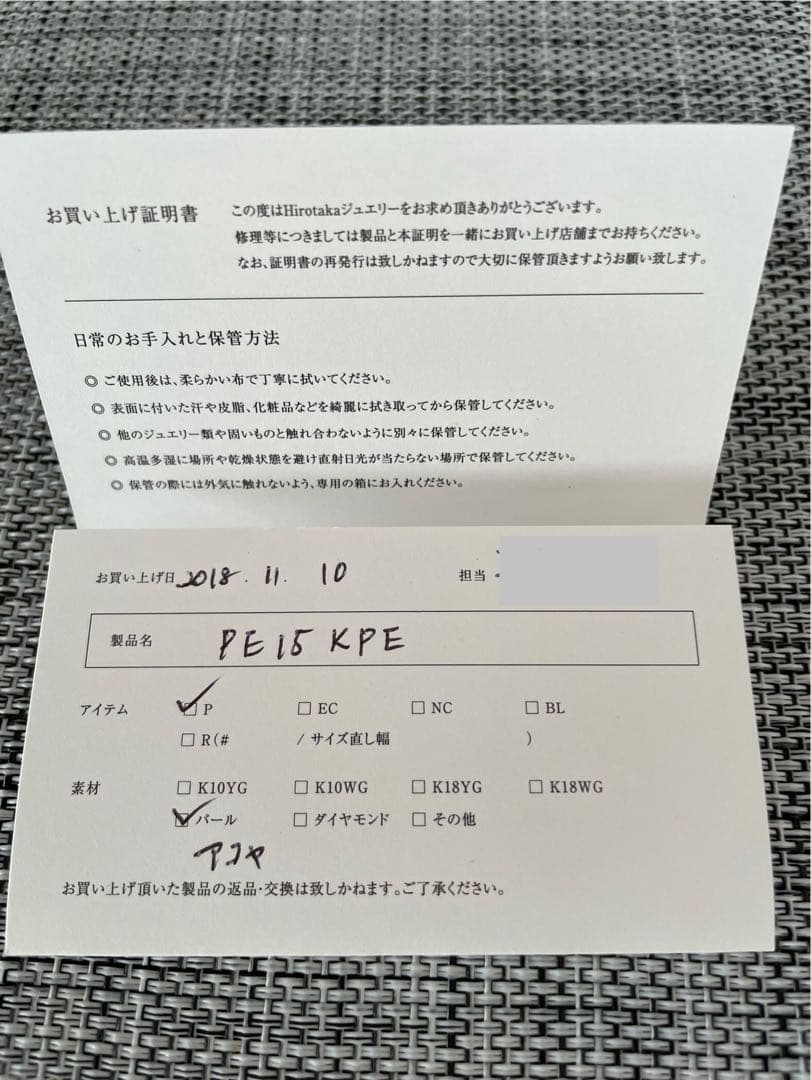 お買い上げ証明書
この度はHirotakaジュエリーをお求め頂きありがとうございます。
修理等につきましては製品と本証明を一緒にお買い上げ店舗までお持ちください。
なお、証明書の再発行は致しかねますので大切に保管頂きますようお願い致します。
日常のお手入れと保管方法
◎ ご使用後は、柔らかい布で丁寧に拭いてください。
◎ 表面に付いた汗や皮脂、化粧品などを綺麗に拭き取ってから保管してください。
◎ 他のジュエリー類や固いものと触れ合わないように別々に保管してください。
◎ 高温多湿に場所や乾燥状態を避け直射日光が当たらない場所で保管してください。
◎ 保管の際には外気に触れないよう、専用の箱にお入れください。
お買い上げ日 2018. 11. 10 担当
製品名 PE15KPE
アイテム ☑ P □ EC □ NC □ BL
□ R(# / サイズ直し幅 )
素材 □ K10YG □ K10WG □ K18YG □ K18WG
☑ パール □ ダイヤモンド □ その他
アコヤ
お買い上げ頂いた製品の返品・交換は致しかねます。ご了承ください。